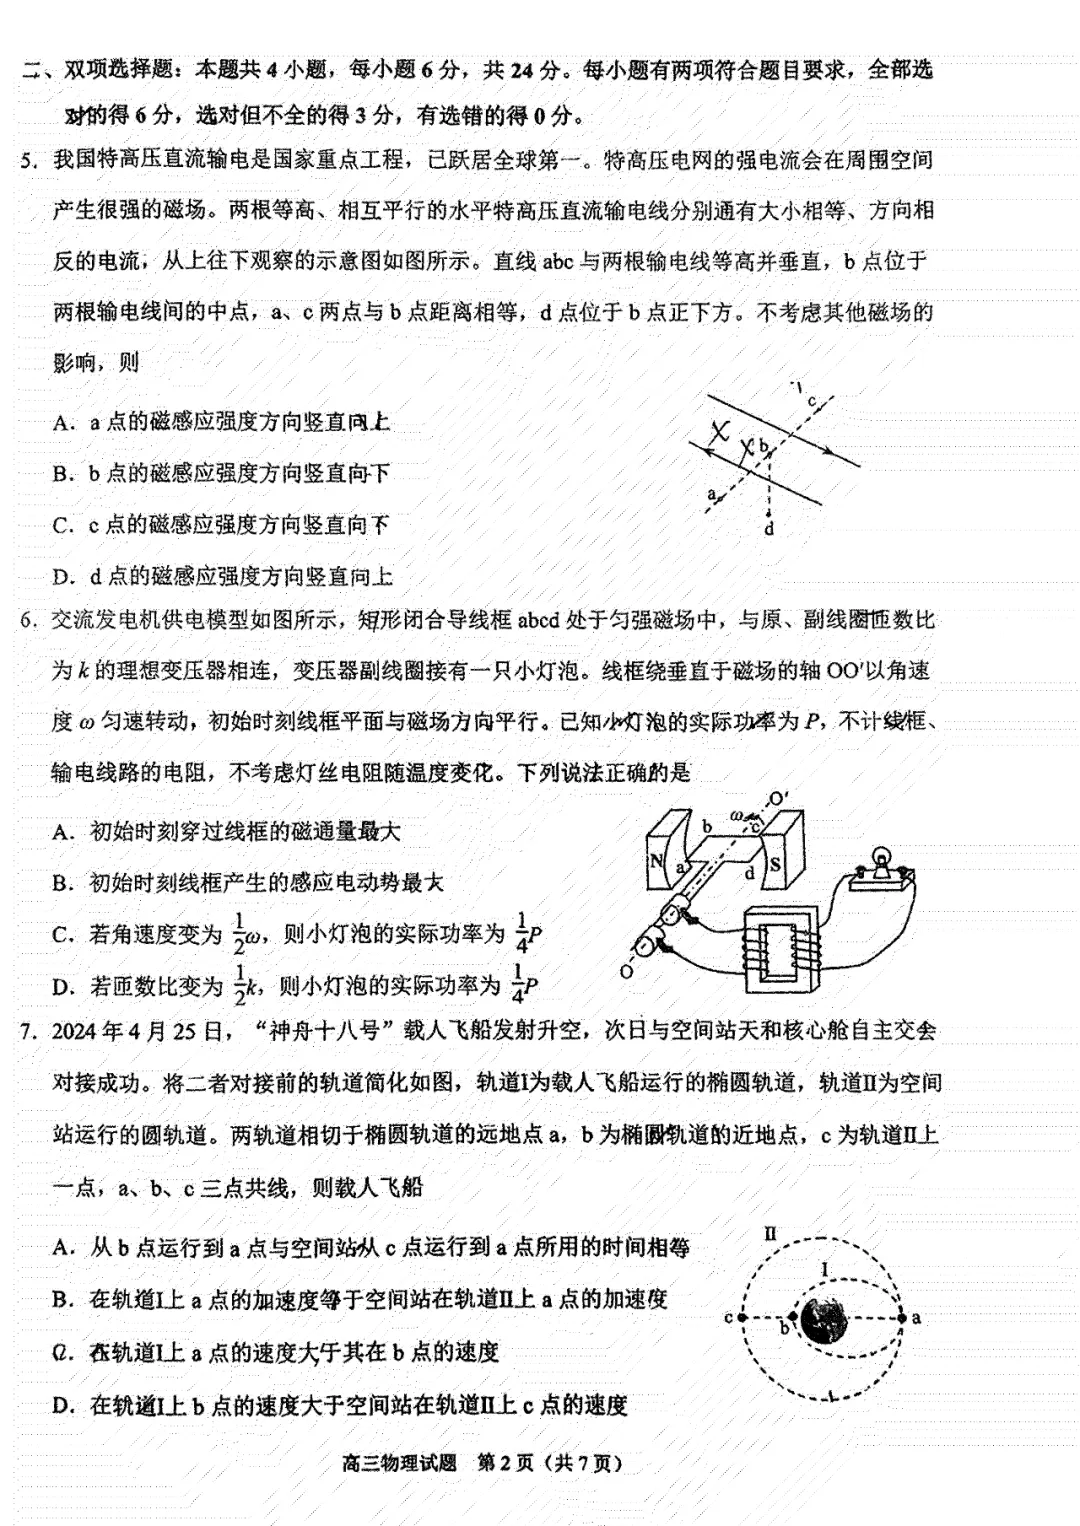 二、双项选择题：本题共 4 小题，每小题 6 分，共 24 分。每小题有两项符合题目要求，全部选
对的得 6 分，选对但不全的得 3 分，有选错的得 0 分。
5．我国特高压直流输电是国家重点工程，已跃居全球第一。特高压电网的强电流会在周围空间
产生很强的磁场。两根等高、相互平行的水平特高压直流输电线分别通有大小相等、方向相
反的电流，从上往下观察的示意图如图所示。直线 abc 与两根输电线等高并垂直，b 点位于
两根输电线间的中点，a、c 两点与 b 点距离相等，d 点位于 b 点正下方。不考虑其他磁场的
影响，则
A．a 点的磁感应强度方向竖直向上
B．b 点的磁感应强度方向竖直向下
C．c 点的磁感应强度方向竖直向下
D．d 点的磁感应强度方向竖直向上
c
X
X
b
a
d
6．交流发电机供电模型如图所示，矩形闭合导线框 abcd 处于匀强磁场中，与原、副线圈匝数比
为 k 的理想变压器相连，变压器副线圈接有一只小灯泡。线框绕垂直于磁场的轴 OO′以角速
度 ω 匀速转动，初始时刻线框平面与磁场方向平行。已知小灯泡的实际功率为 P，不计线框、
输电线路的电阻，不考虑灯丝电阻随温度变化。下列说法正确的是
A．初始时刻穿过线框的磁通量最大
B．初始时刻线框产生的感应电动势最大
C．若角速度变为 1/2 ω，则小灯泡的实际功率为 1/4 P
D．若匝数比变为 1/2 k，则小灯泡的实际功率为 1/4 P
O′
ω
b
c
N
a
d
S
O
7．2024 年 4 月 25 日，“神舟十八号”载人飞船发射升空，次日与空间站天和核心舱自主交会
对接成功。将二者对接前的轨道简化如图，轨道Ⅰ为载人飞船运行的椭圆轨道，轨道Ⅱ为空间
站运行的圆轨道。两轨道相切于椭圆轨道的远地点 a，b 为椭圆轨道的近地点，c 为轨道Ⅱ上
一点，a、b、c 三点共线，则载人飞船
A．从 b 点运行到 a 点与空间站从 c 点运行到 a 点所用的时间相等
B．在轨道Ⅰ上 a 点的加速度等于空间站在轨道Ⅱ上 a 点的加速度
C．在轨道Ⅰ上 a 点的速度大于其在 b 点的速度
D．在轨道Ⅰ上 b 点的速度大于空间站在轨道Ⅱ上 c 点的速度
Ⅱ
Ⅰ
c
b
a
高三物理试题 第 2 页（共 7 页）